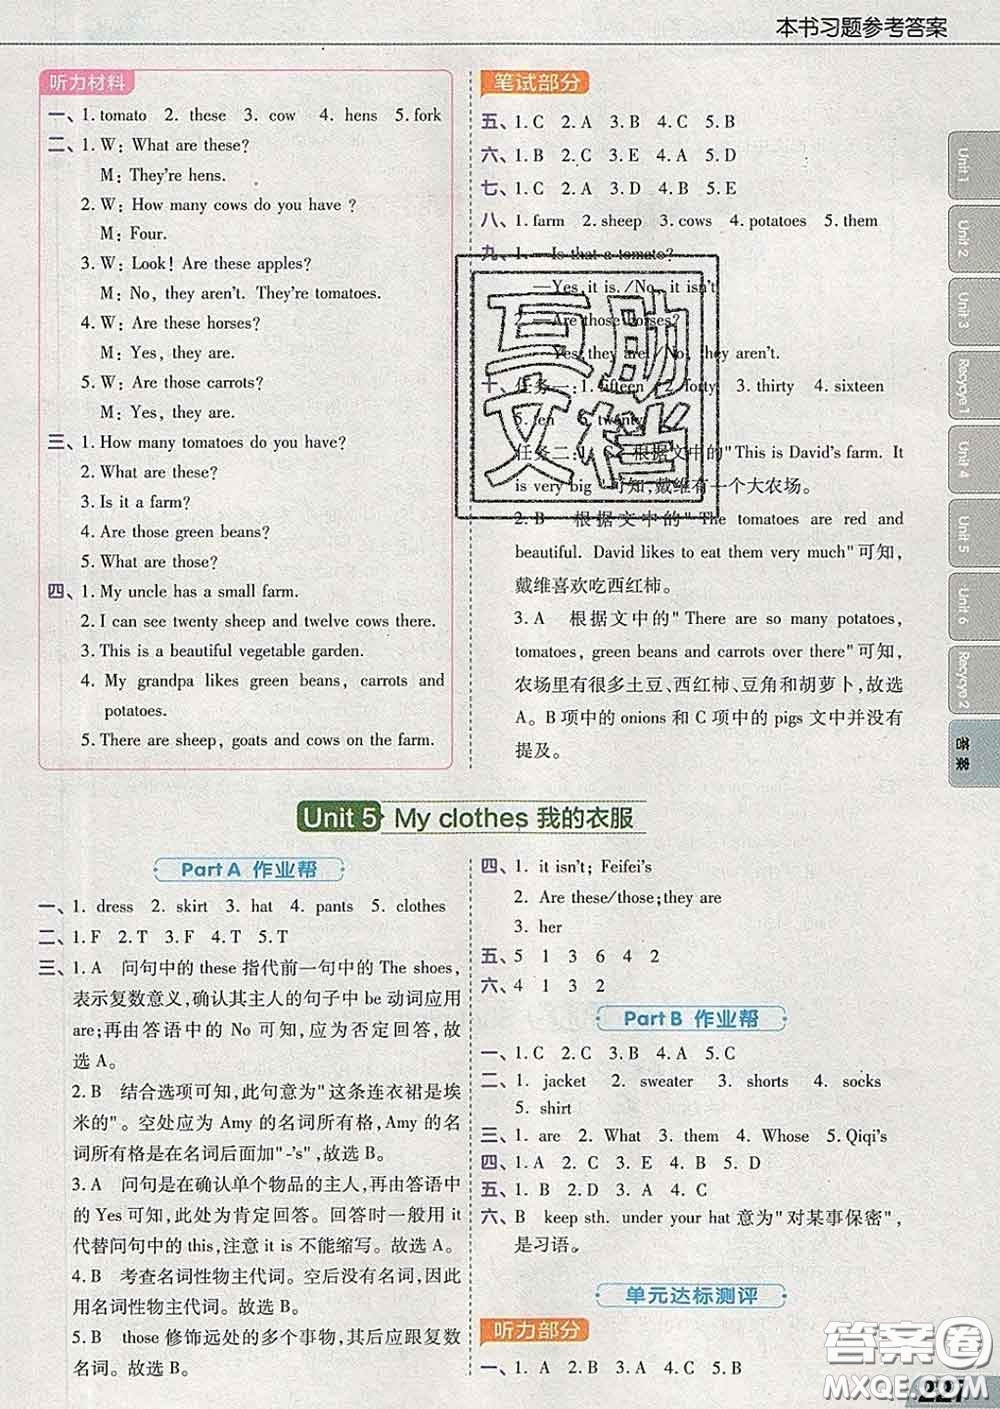 本书习题参考答案
听力材料
一、1. tomato 2. these 3. cow 4. hens 5. fork
二、1. W: What are these?
M: They're hens.
2. W: How many cows do you have ?
M: Four.
3. W: Look! Are these apples?
M: No, they aren't. They're tomatoes.
4. W: Are these horses?
M: Yes, they are.
5. W: Are those carrots?
M: Yes, they are.
三、1. How many tomatoes do you have?
2. What are these?
3. Is it a farm?
4. Are those green beans?
5. What are those?
四、1. My uncle has a small farm.
2. I can see twenty sheep and twelve cows there.
3. This is a beautiful vegetable garden.
4. My grandpa likes green beans, carrots and
potatoes.
5. There are sheep, goats and cows on the farm.
笔试部分
五、1. C 2. A 3. B 4. C 5. B
六、1. B 2. C 3. E 4. A 5. D
七、1. C 2. A 3. D 4. B 5. E
八、1. farm 2. sheep 3. cows 4. potatoes 5. them
九、1. —Is that a tomato?
—Yes, it is. /No, it isn't.
2. —Are those horses?
Yes, they are. /No, they aren't.
十、任务一:1. fifteen 2. forty 3. thirty 4. sixteen
5. ten 6. twenty
任务二:1. C 根据文中的"This is David's farm. It
is very big "可知,戴维有一个大农场。
2. B 根据文中的" The tomatoes are red and
beautiful. David likes to eat them very much"可知,
戴维喜欢吃西红柿。
3. A 根据文中的" There are so many potatoes,
tomatoes, green beans and carrots over there"可知,
农场里有很多土豆、西红柿、豆角和胡萝卜,故选
A。B 项中的 onions 和 C 项中的 pigs 文中并没有
提及。
互助
文档
Unit 1
Unit 2
Unit 3
Recycle 1
Unit 4
Unit 5
Unit 6
Recycle 2
答案
Unit 5 My clothes 我的衣服
Part A 作业帮
一、1. dress 2. skirt 3. hat 4. pants 5. clothes
二、1. F 2. T 3. F 4. T 5. T
三、1. A 问句中的 these 指代前一句中的 The shoes,
表示复数意义,确认其主人的句子中 be 动词应用
are;再由答语中的 No 可知,应为否定回答,故
选 A。
2. B 结合选项可知,此句意为"这条连衣裙是埃
米的"。空处应为 Amy 的名词所有格,Amy 的名
词所有格是在名词后面加"-'s",故选 B。
3. A 问句是在确认单个物品的主人,再由答语中
的 Yes 可知,此处为肯定回答。回答时一般用 it
代替问句中的 this,注意 it is 不能缩写。故选 A。
4. B 考查名词性物主代词。空后没有名词,因此
用名词性物主代词。故选 B。
5. B those 修饰远处的多个事物,其后应跟复数
名词。故选 B。
四、1. it isn't; Feifei's
2. Are these/those;they are
3. her
五、5 1 3 6 4 2
六、4 1 3 2
Part B 作业帮
一、1. C 2. C 3. B 4. A 5. C
二、1. jacket 2. sweater 3. shorts 4. socks
5. shirt
三、1. are 2. What 3. them 4. Whose 5. Qiqi's
四、1. A 2. C 3. E 4. B 5. D
五、1. B 2. D 3. A 4. C
六、B keep sth. under your hat 意为"对某事保密",
是习语。
单元达标测评
听力部分
一、1. A 2. B 3. A 4. C 5. B
答案圈
MXQE.COM
227